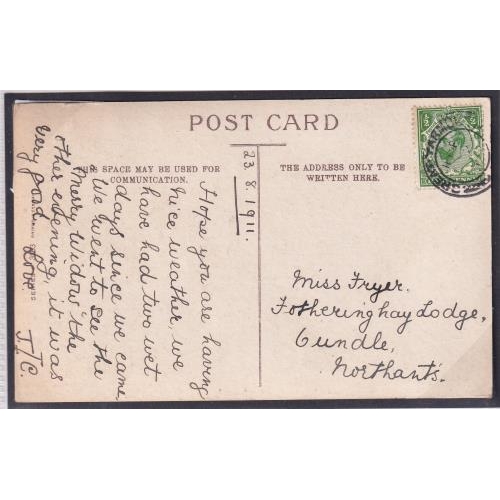 POST CARD
THE SPACE MAY BE USED FOR
COMMUNICATION.
THE ADDRESS ONLY TO BE
WRITTEN HERE.
23.8.1911.
Hope you are having
nice weather, we
have had two wet
days since we came
We went to see the
"Merry Widow" the
other evening, it was
very good
Love
J.C.
Miss Fryer.
Fotheringhay Lodge,
Oundle,
Northants.